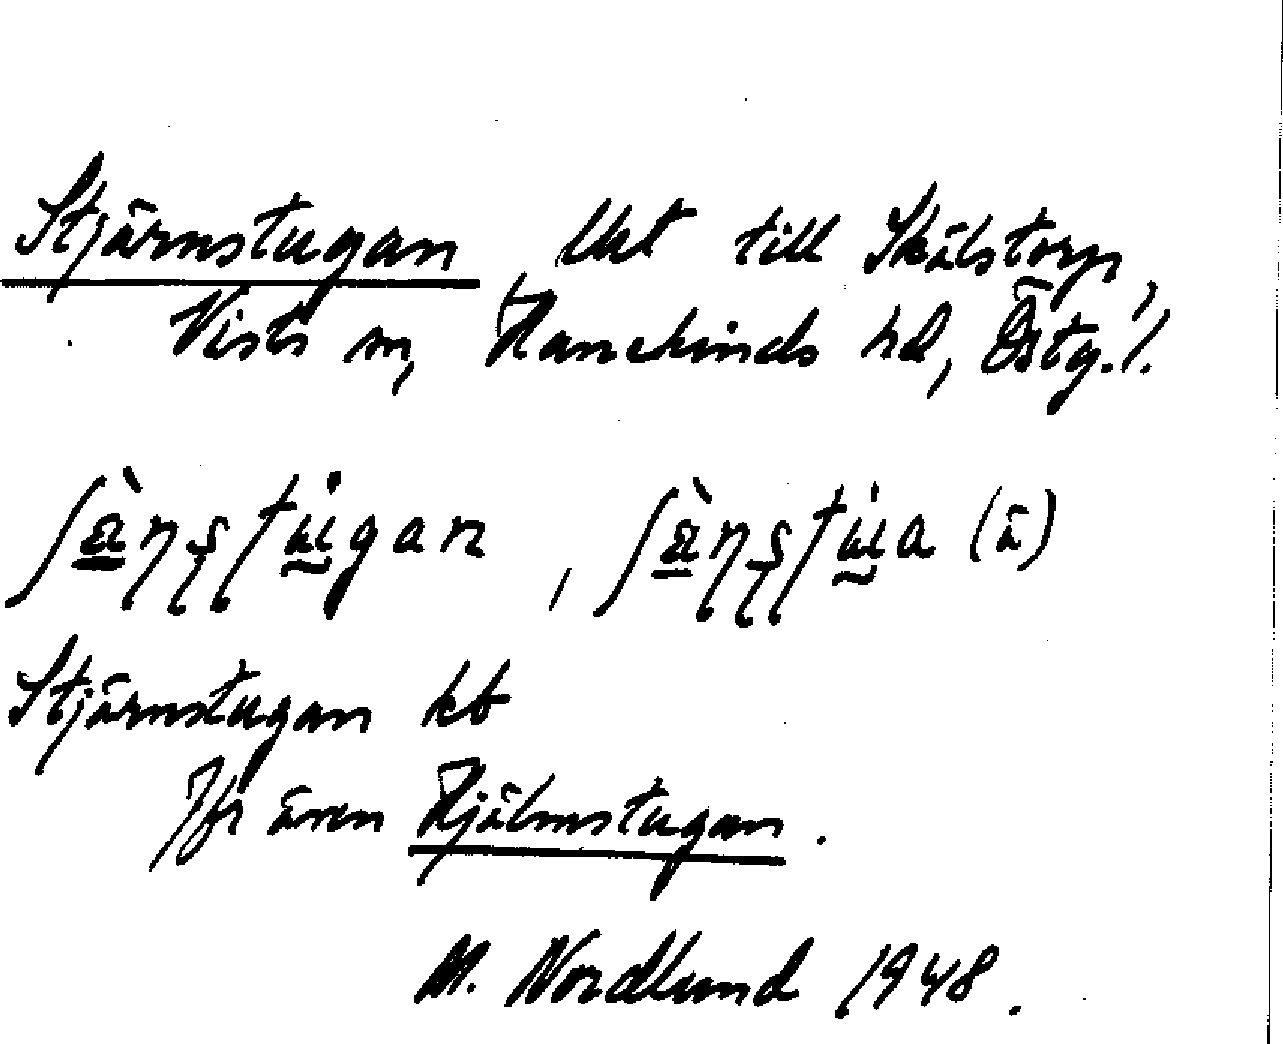 Stjärnstugan, lht till Skälstorp,
Vists sn, Hanekinds hd, Östg. l.
ʃæ̀ṇṣtu̇gan, ʃæ̀ṇṣtu̇a (ä)
Stjärnstugan kb
Jfr även Hjälmstugan.
M. Nordlund 1948.